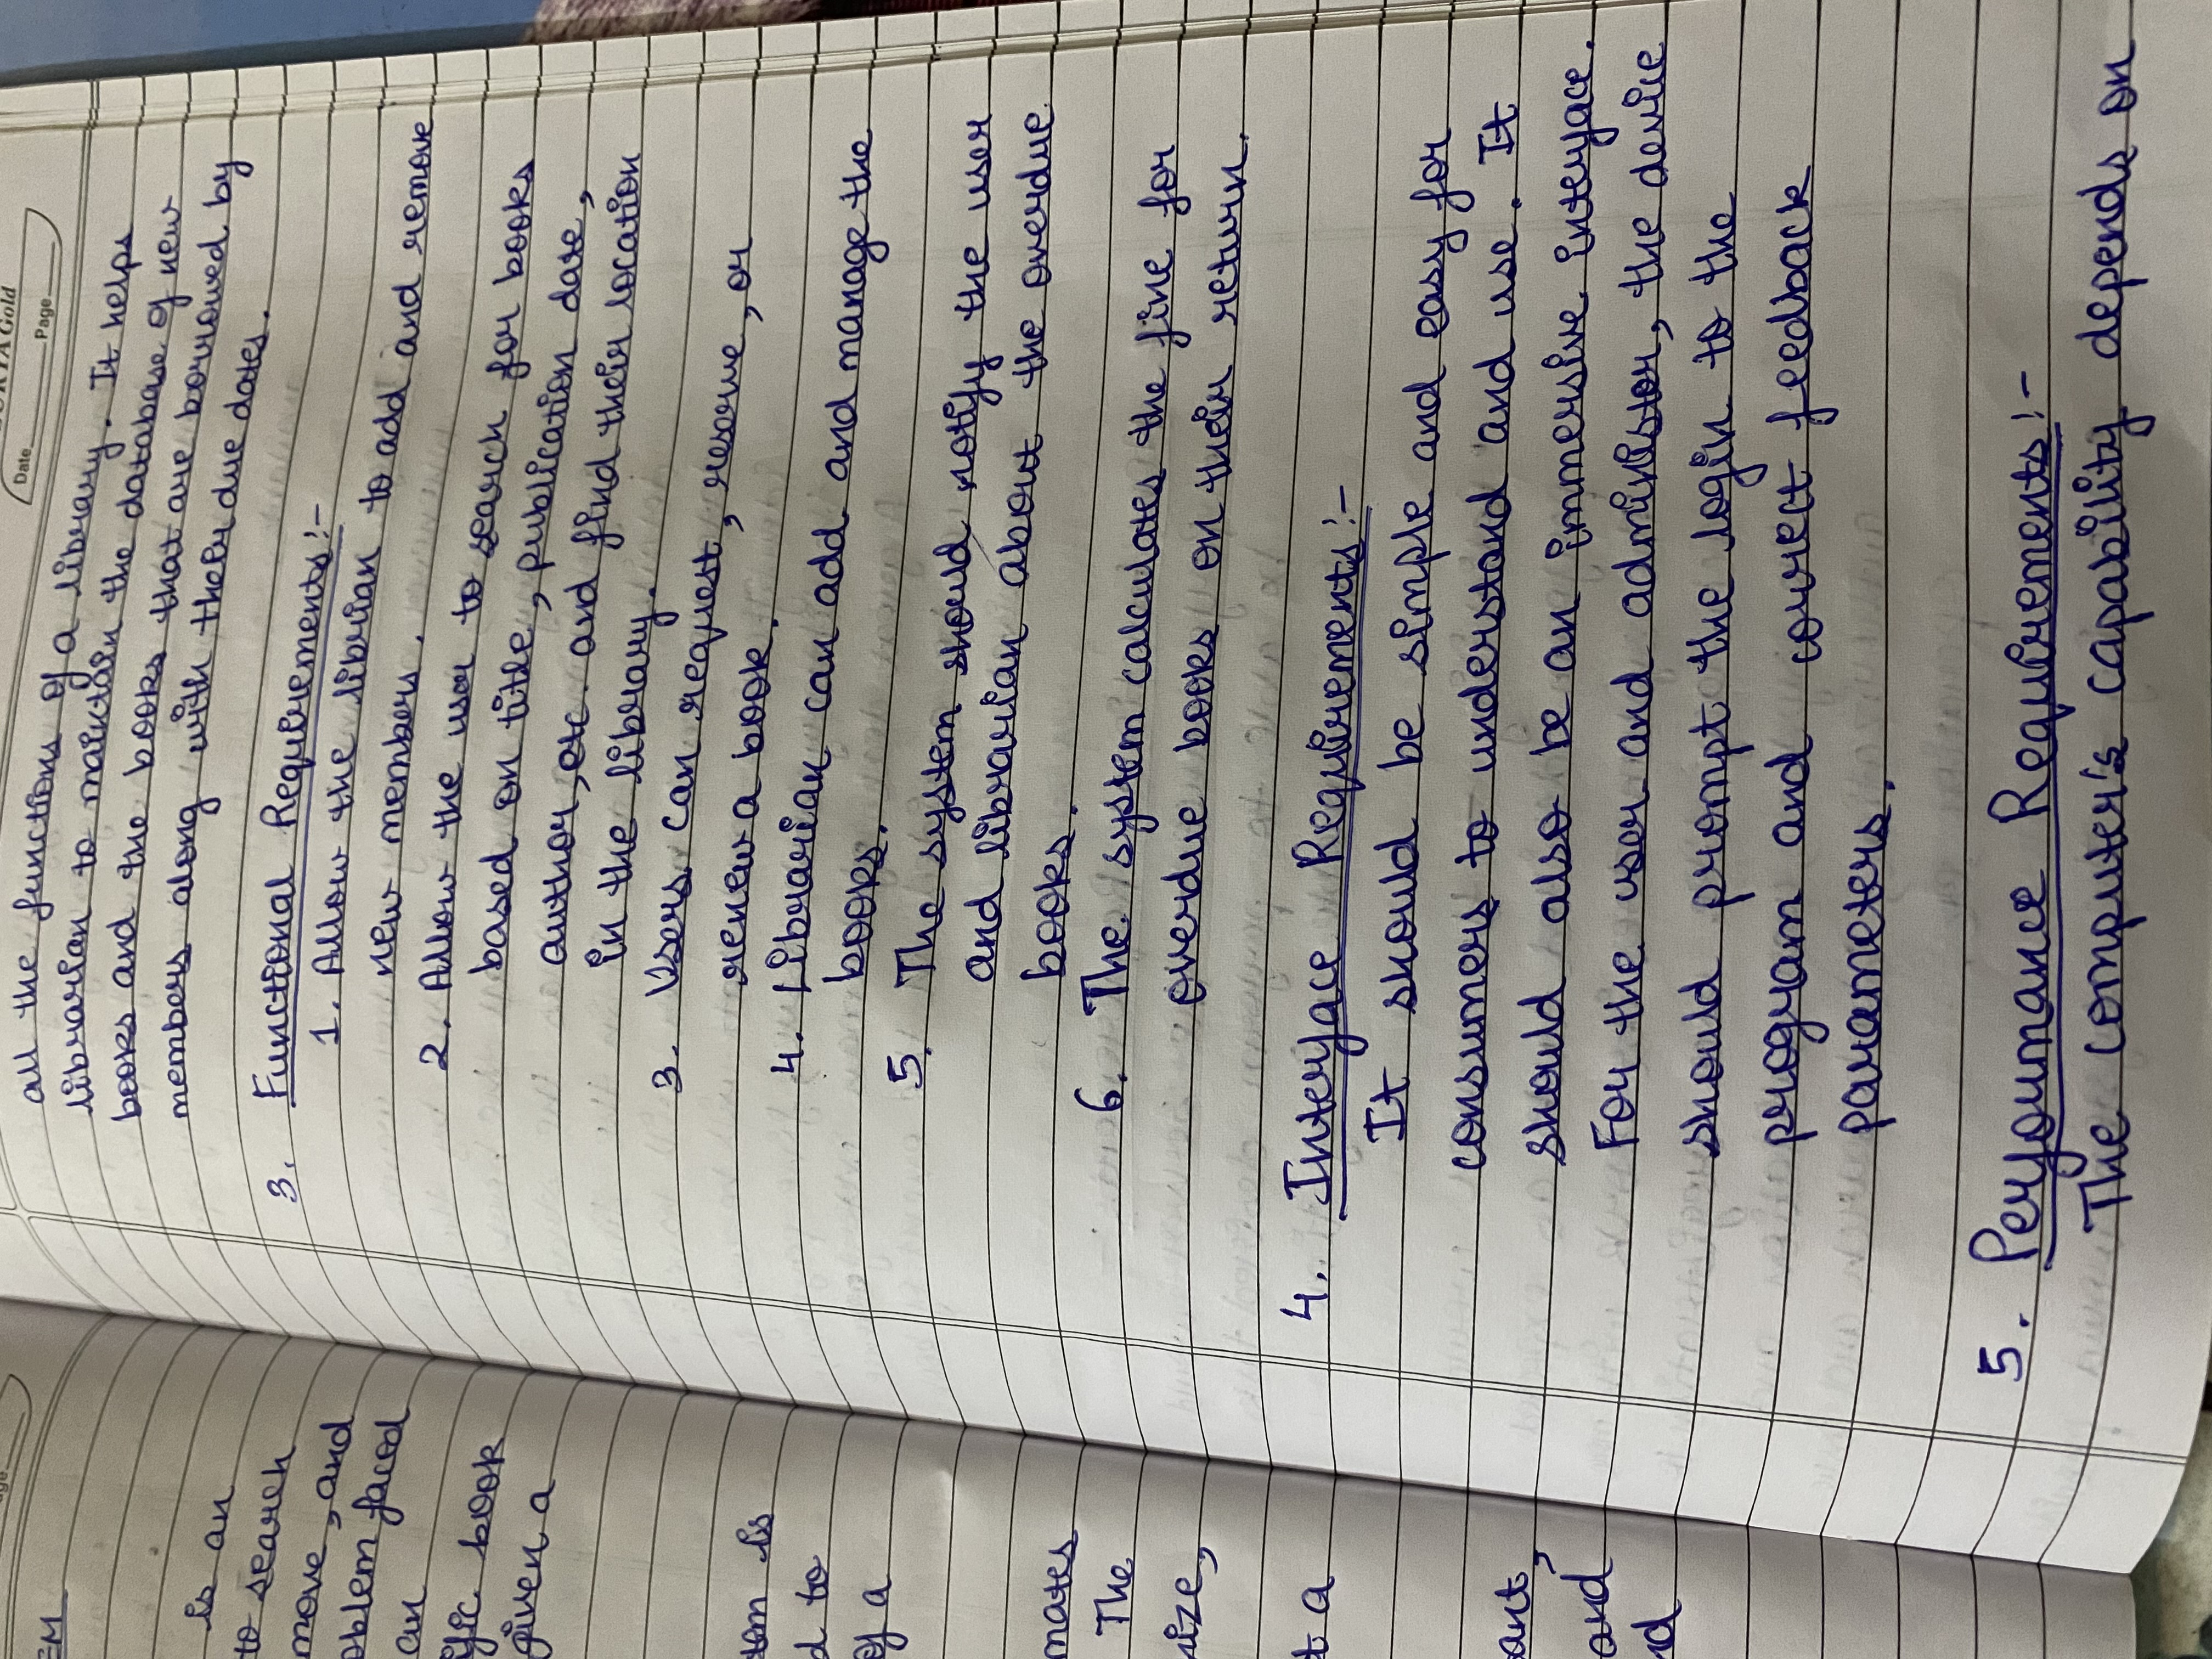 EM
is an
to search
move, and
oblem faced
an
book
given a
tem is
d to
of a
mates
The
nize,
t a
ant,
and
nd
Gold
Date Page
all the functions of a library. It helps
librarian to maintain the database of new
books and the books that are borrowed by
members along with their due dates.
3. Functional Requirements:-
1. Allow the librian to add and remove
new members.
2. Allow the user to search for books
based on title, publication date,
author, etc. and find their location
in the library.
3. Users can request, reserve, or
renew a book.
4. Librarian can add and manage the
books.
5. The system should notify the user
and librarian about the overdue
books.
6. The system calculates the fine for
overdue books on their return.
4. Interface Requirements:-
It should be simple and easy for
consumers to understand and use. It
should also be an immersive interface.
For the user and administor, the device
should prompt the login to the
program and correct feedback
parameters.
5. Performance Requirements:-
The computer's capability depends on